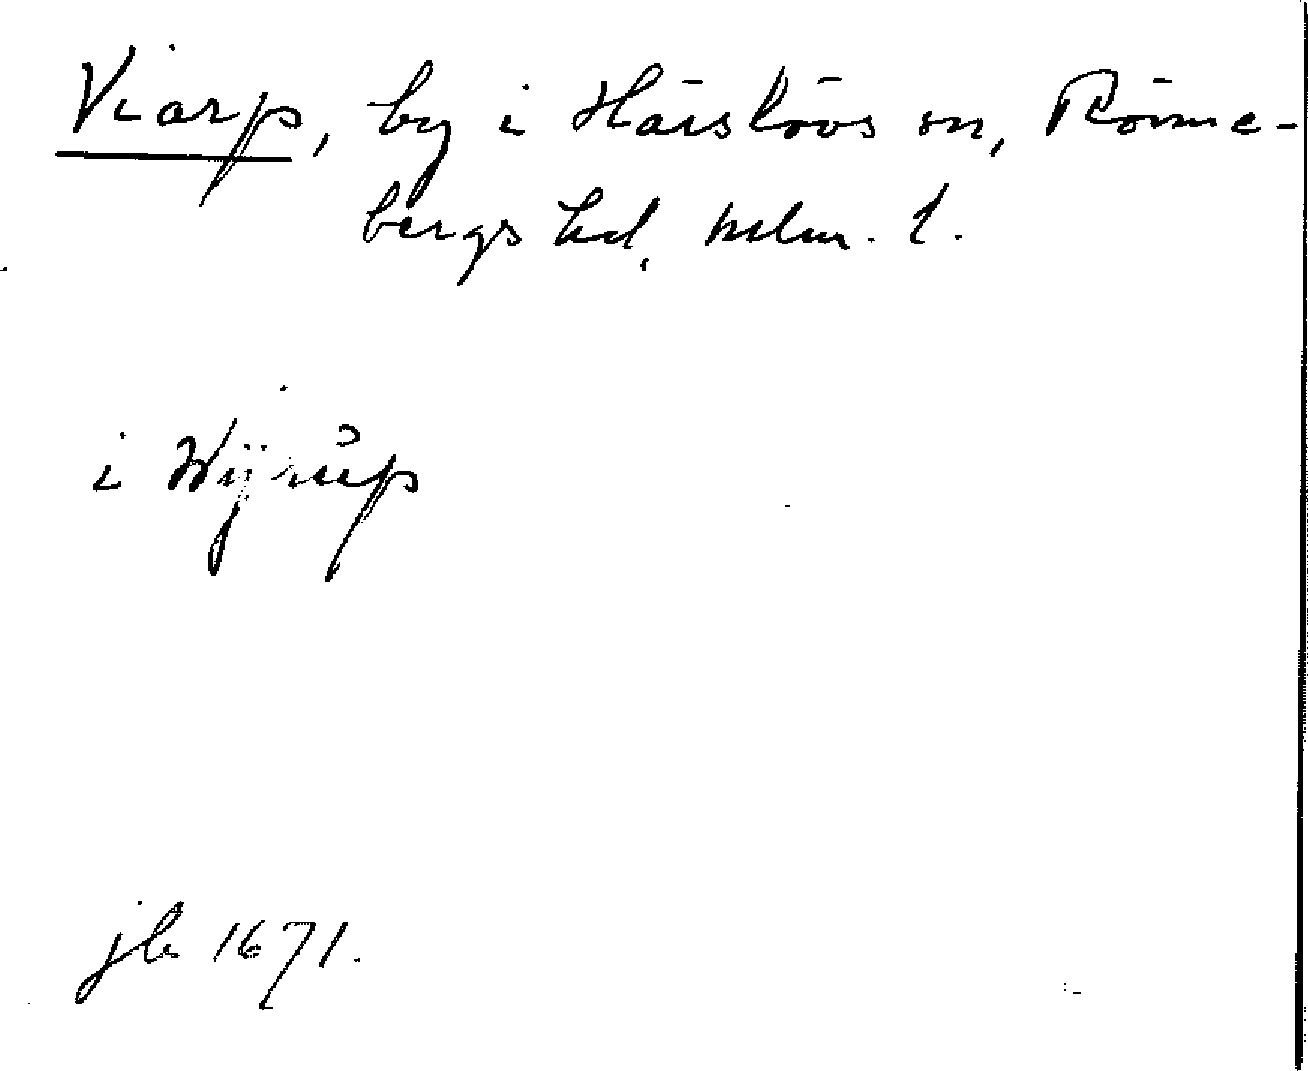 Viarp, by i Härslövs sn, Rönne-
bergs hd, Mlm. l.
i Wÿrŭp
jb 1671.